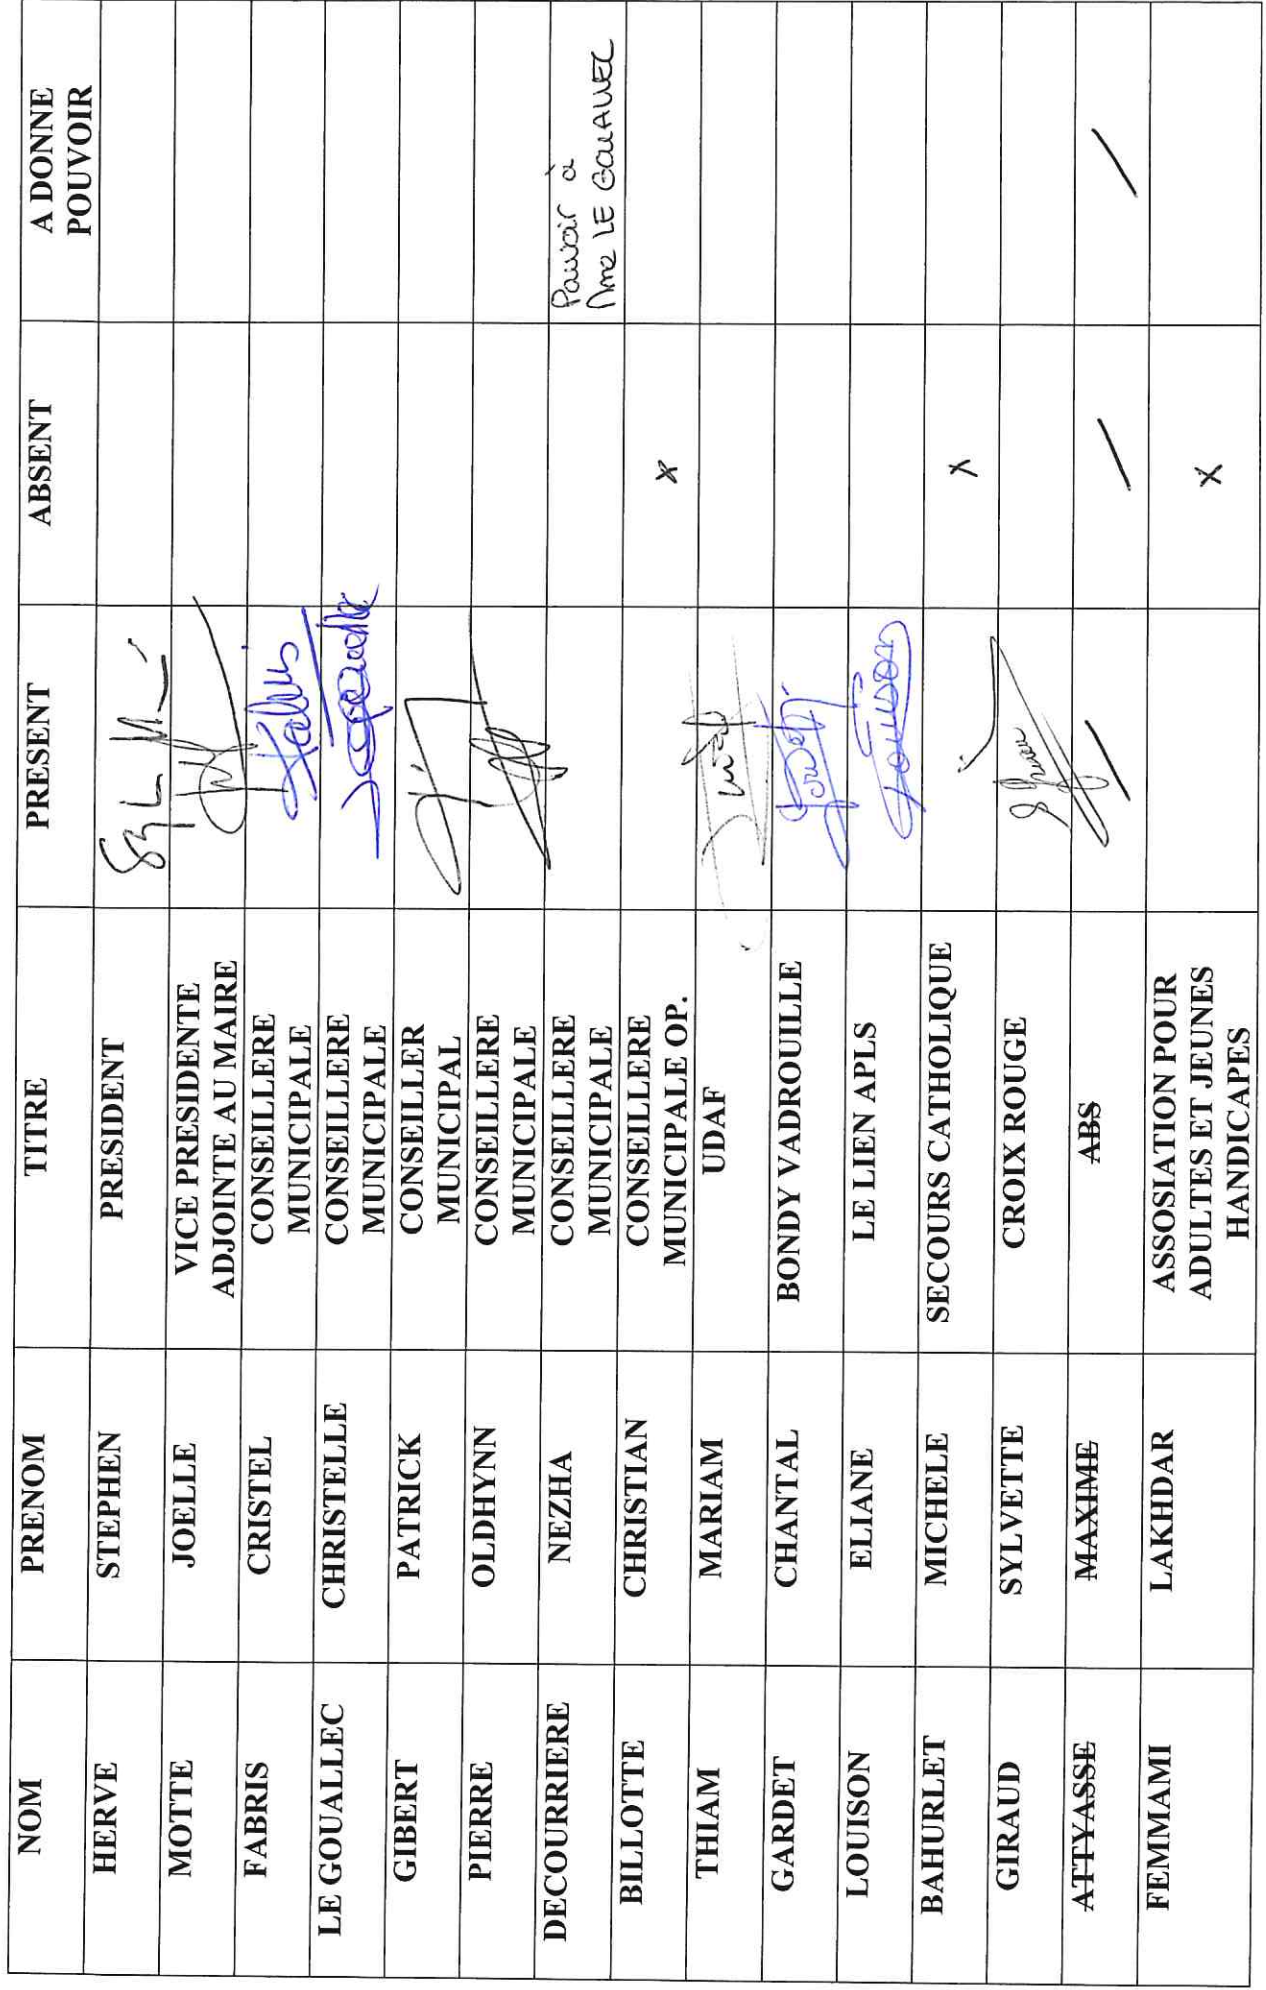 NOM PRENOM TITRE PRESENT ABSENT A DONNE
POUVOIR
HERVE STEPHEN PRESIDENT
MOTTE JOELLE VICE PRESIDENTE
ADJOINTE AU MAIRE
FABRIS CRISTEL CONSEILLERE
MUNICIPALE
Fabris
LE GOUALLEC CHRISTELLE CONSEILLERE
MUNICIPALE
GIBERT PATRICK CONSEILLER
MUNICIPAL
PIERRE OLDHYNN CONSEILLERE
MUNICIPALE
DECOURRIERE NEZHA CONSEILLERE
MUNICIPALE
Pouvoir à
Mme LE GOUALLEC
BILLOTTE CHRISTIAN CONSEILLERE
MUNICIPALE OP.
x
THIAM MARIAM UDAF
GARDET CHANTAL BONDY VADROUILLE
LOUISON ELIANE LE LIEN APLS Louison
BAHURLET MICHELE SECOURS CATHOLIQUE x
GIRAUD SYLVETTE CROIX ROUGE
ATTYASSE MAXIME ABS / / /
FEMMAMI LAKHDAR ASSOSIATION POUR
ADULTES ET JEUNES
HANDICAPES
x